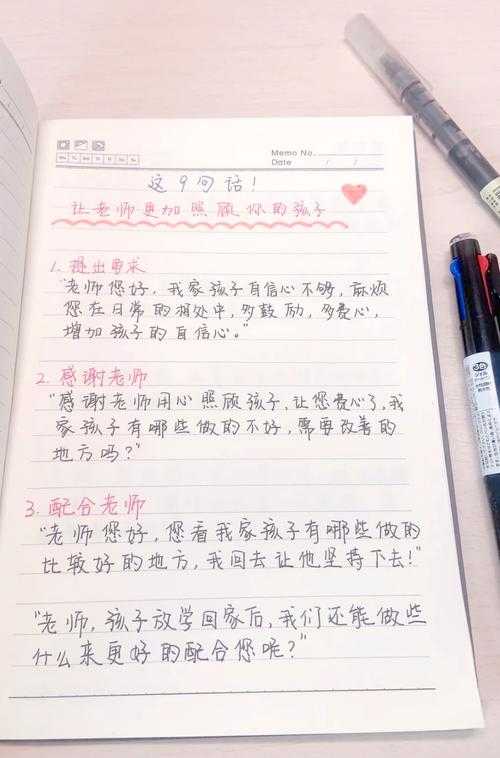 Memo No.
Date / /
这9句话！
让老师更加照顾你的孩子
1. 提出要求
"老师您好，我家孩子自信心不够，麻烦
您在日常的相处中，多鼓励，多费心，
增加孩子的自信心。"
2. 感谢老师
"感谢老师用心照顾孩子，让您费心了，我
家孩子有哪些做的不好，需要改善的
地方吗？"
3. 配合老师
"老师您好，您看我家孩子有哪些做的
比较好的地方，我回去让他坚持下去！"
"老师，孩子放学回家后，我们还能做些
什么来更好的配合您呢？"